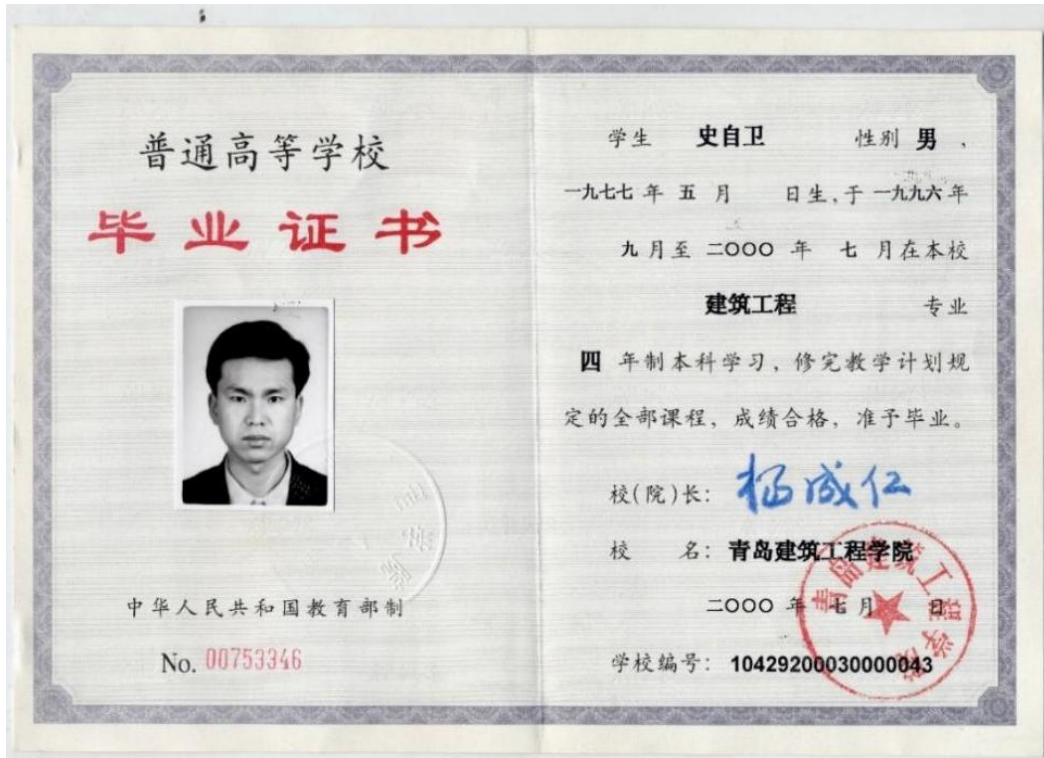 普通高等学校
毕业证书
中华人民共和国教育部制
No. 00753346
学生 史自卫 性别 男 ,
一九七七 年 五 月 日生,于 一九九六 年
九 月至 二〇〇〇 年 七 月在本校
建筑工程 专业
四 年制本科学习,修完教学计划规
定的全部课程,成绩合格,准予毕业。
校(院)长: 杨成仁
校 名: 青岛建筑工程学院
二〇〇〇 年 七 月 日
学校编号: 10429200030000043
青岛建筑工程学院